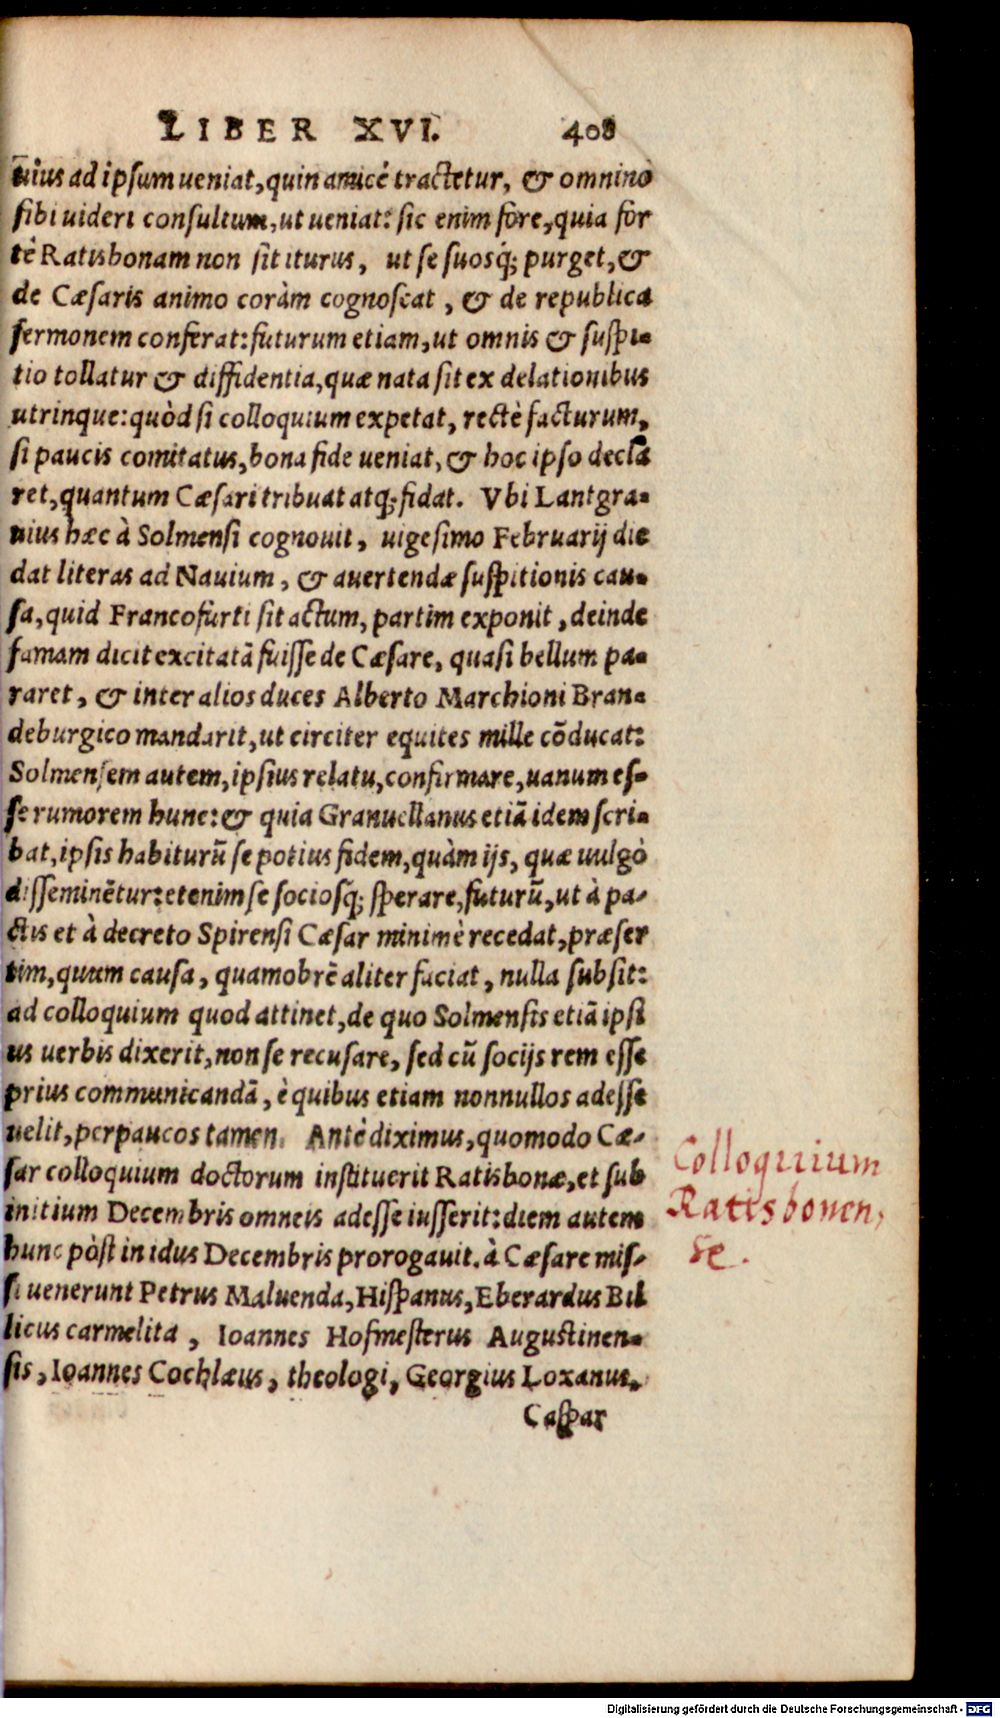 LIBER XVI. 408
uius ad ipsum ueniat, quin amicè tractetur, & omninò
sibi uideri consultum, ut ueniat: sic enim fore, quia for
tè Ratisbonam non sit iturus, ut se suosq; purget, &
de Cæsaris animo coràm cognoscat, & de republica
sermonem conferat: futurum etiam, ut omnis & suspi-
tio tollatur & diffidentia, quæ nata sit ex delationibus
utrinque: quòd si colloquium expetat, rectè facturum,
si paucis comitatus, bona fide ueniat, & hoc ipso decla
ret, quantum Cæsari tribuat atq; fidat. Vbi Lantgra-
uius hæc à Solmensi cognouit, uigesimo Februarij die
dat literas ad Nauium, & auertendæ suspitionis cau-
sa, quid Francofurti sit actum, partim exponit, deinde
famam dicit excitatã fuisse de Cæsare, quasi bellum pa-
raret, & inter alios duces Alberto Marchioni Bran-
deburgico mandarit, ut circiter equites mille cõducat:
Solmensem autem, ipsius relatu, confirmare, uanum es-
se rumorem hunc: & quia Granuellanus etiã idem scri-
bat, ipsis habiturũ se potius fidem, quàm ijs, quæ uulgò
disseminẽtur: etenim se sociosq; sperare, futurũ, ut à pa-
ctis et à decreto Spirensi Cæsar minimè recedat, præser
tim, quum causa, quamobrẽ aliter faciat, nulla subsit:
ad colloquium quod attinet, de quo Solmensis etiã ipsi
us uerbis dixerit, non se recusare, sed cũ socijs rem esse
prius communicandã, è quibus etiam nonnullos adesse
uelit, perpaucos tamen. Antè diximus, quomodo Cæ-
sar colloquium doctorum instituerit Ratisbonæ, et sub
initium Decembris omneis adesse iusserit: diem autem
hunc pòst in idus Decembris prorogauit. à Cæsare mis-
si uenerunt Petrus Maluenda, Hispanus, Eberardus Bil
licus carmelita, Ioannes Hofmesterus Augustinen-
sis, Ioannes Cochlæus, theologi, Georgius Loxanus,
Caspar
Colloquium
Ratisbonen,
se.
Digitalisierung gefördert durch die Deutsche Forschungsgemeinschaft - DFG